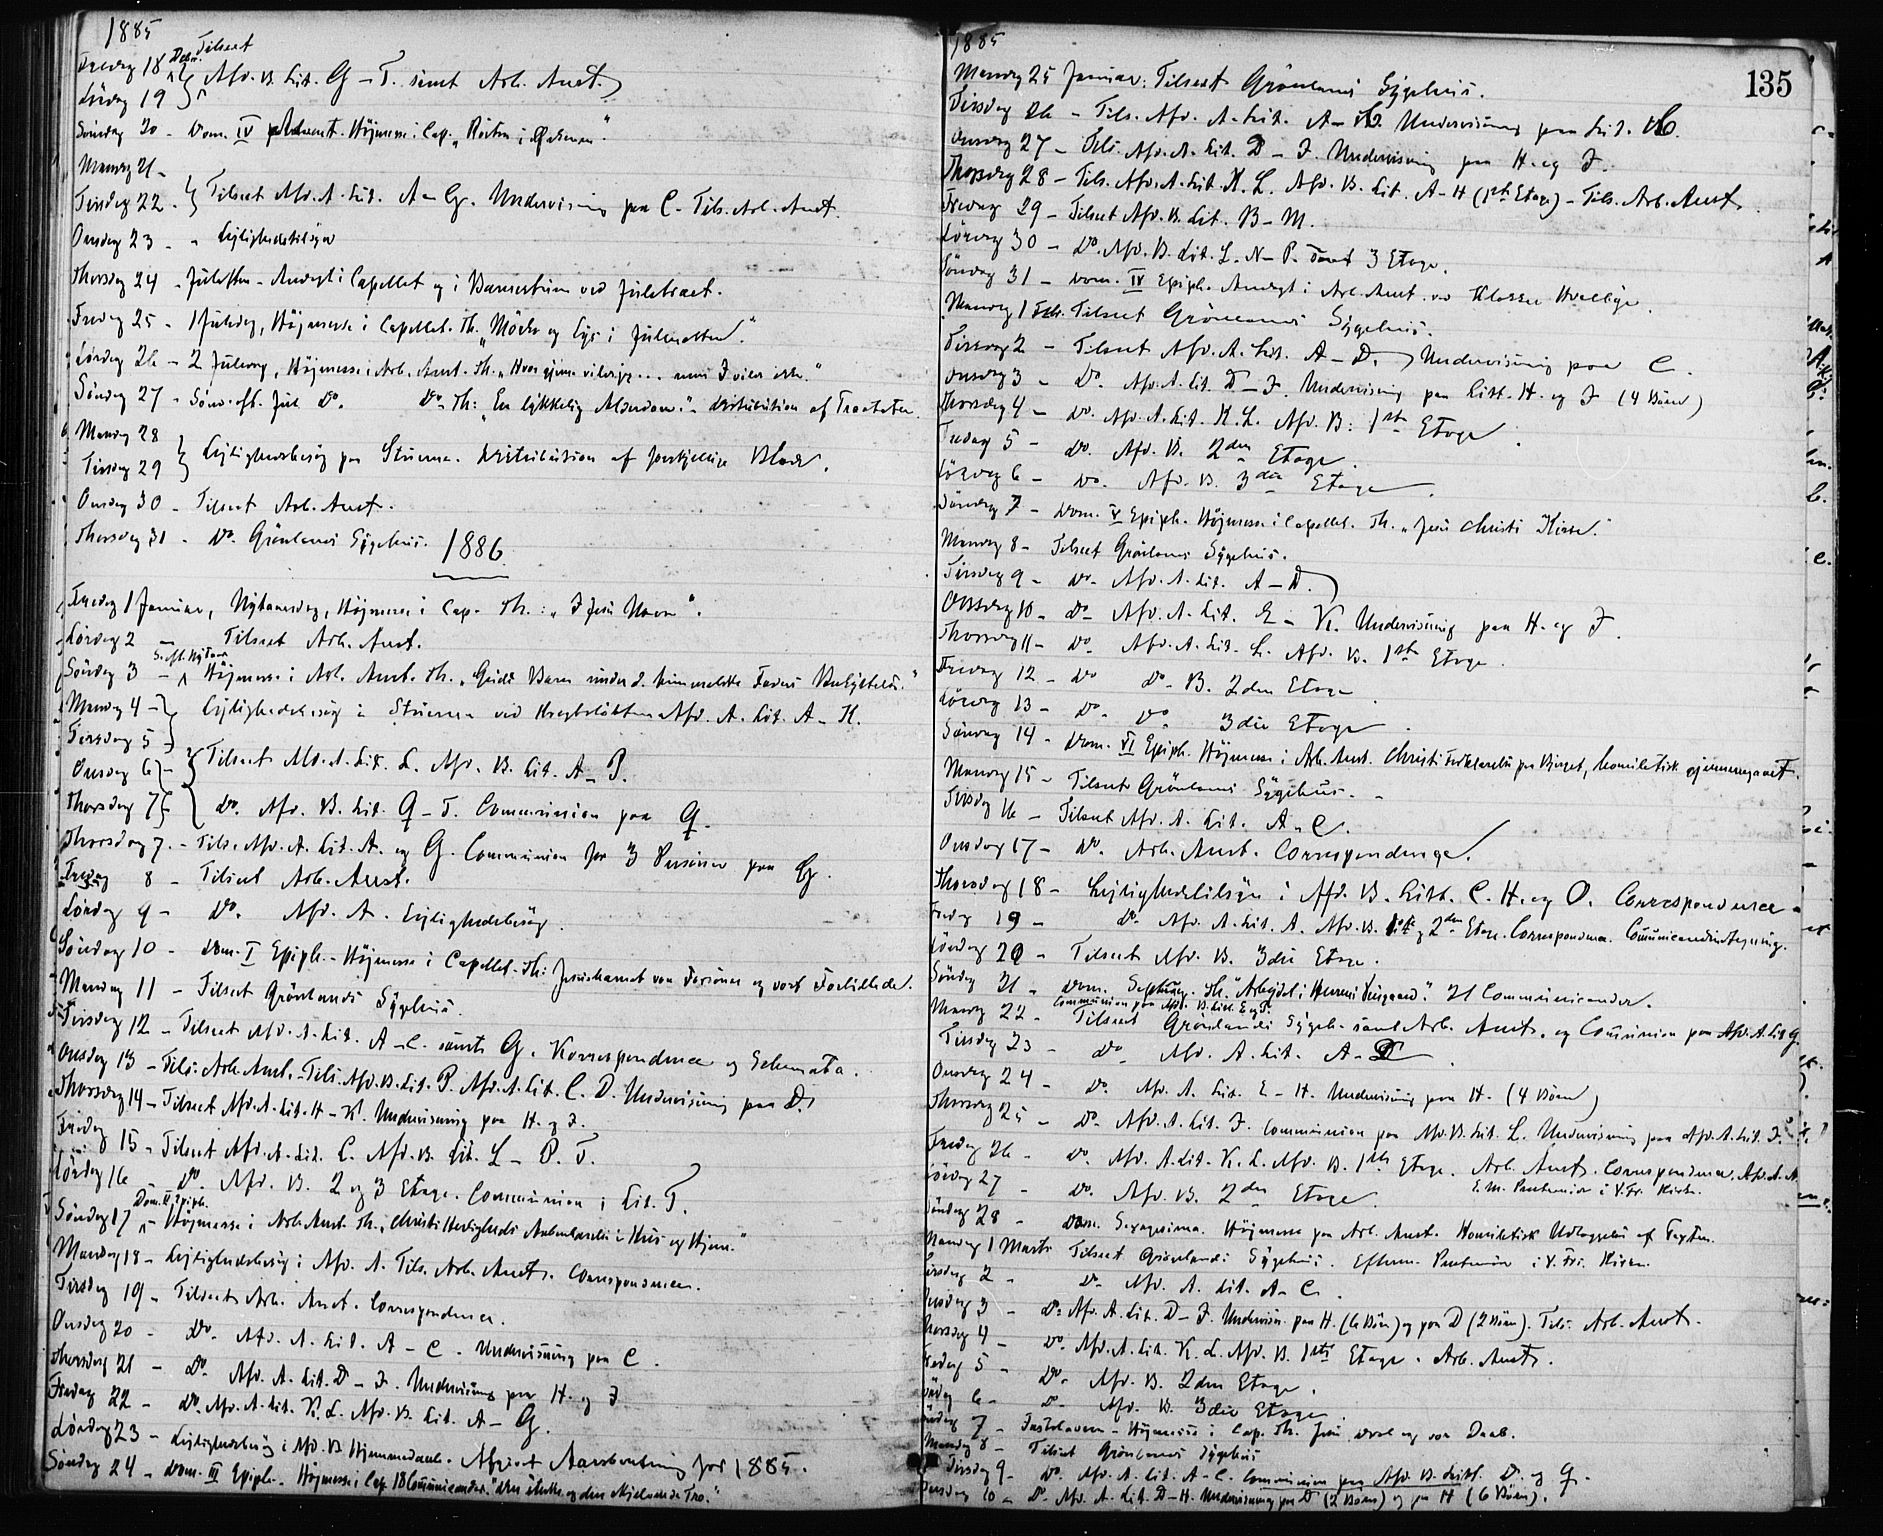 1885
Fredag 18 Decbr. Tilseet
Lördag 19 Afd. B. Lit. G - T. samt Arb. Anst.
Söndag 20 - Dom. IV Advent. Höjmesse i Cap. "Rösten i Örkenen".
Mandag 21 -
Tirsdag 22 - Tilseet Afd. A. Lit. A - G. Undervisning paa C - Tils. Arb. Anst.
Onsdag 23 - " Lejlighedstilsyn
Thorsdag 24 - Juleaften - Andagt i Capellet og i Barnestuen ved Juletraeet.
Fredag 25 - 1 Juledag, Höjmesse i Capellet. Th. "Mörke og Lys i Julenatten".
Lördag 26 - 2 Juledag, Höjmesse i Arb. Anst. Th. "Hvor gjerne vilde jeg ... men I vilde ikke."
Söndag 27 - Sönd. eft. Jul Do. Do. Th: "En lykkelig Alderdom". - Distribution af Tractater.
Mandag 28
Tirsdag 29 Lejlighedsbesög paa Stuerne. Distribution af forskjellige Blade.
Onsdag 30 - Tilseet Arb. Anst.
Thorsdag 31 - Do. Grönlands Sygehuus.
1886
Fredag 1 Januar, Nytaarsdag, Höjmesse i Cap. Th.: "I Jesu Navn".
Lördag 2 - Tilseet Arb. Anst.
Söndag 3 - S. eft. Nytaar Höjmesse i Arb. Anst. Th. "Guds Barn under d. himmelske Faders Beskyttelse."
Mandag 4 - Lejlighedsbesög i Stuerne ved Afd. A. Lit. A - K.
Tirsdag 5
Onsdag 6 - Tilseet Afd. A. Lit. L. Afd. B. Lit. A - P.
Thorsdag 7 Do. Afd. B. Lit. Q - T. Communion paa Q.
Thorsdag 7. - Tils. Afd. A. Lit. A. og G. Communion for 3 Personer paa G.
Fredag 8 - Tilseet Arb. Anst.
Lördag 9 - Do. Afd. A. Lejlighedsbesög.
Söndag 10 - Dom. I Epiph. - Höjmesse i Capellet - Th: Jesusbarnet vor Forsoner og vort Forbillede.
Mandag 11 - Tilseet Grönlands Sygehuus.
Tirsdag 12 - Tilseet Afd. A. Lit. A - C. samt G. Korrespondence og Schemata.
Onsdag 13 - Tils. Arb. Anst. - Tils. Afd. B. Lit. P. Afd. A. Lit. C. D. Undervisning paa D.
Thorsdag 14 - Tilseet Afd. A. Lit. H - K. Undervisning paa H. og J.
Fredag 15 - Tilseet Afd. A. Lit. C. Afd. B. Lit. L - P. T.
Lördag 16 - Do. Afd. B. 2 og 3 Etage. Communion i Lit. T.
Söndag 17 - Dom. II Epiph. Höjmesse i Arb. Anst. Th. "Christi Herligheds Aabenbarelse i Huus og Hjem."
Mandag 18 - Lejlighedsbesög i Afd. A. Tils. Arb. Anst. Correspondence.
Tirsdag 19 - Tilseet Arb. Anst. Correspondence.
Onsdag 20 - Do. Afd. A. Lit. A - C. Undervisning paa C.
Thorsdag 21 - Do. Afd. A. Lit. D - J. Undervisning paa H. og J
Fredag 22 - Do. Afd. A. Lit. K. L. Afd. B. Lit. A - G.
Lördag 23 - Lejlighedsbesög i Afd. B Afgivet Aarsberetning for 1885.
Söndag 24 - Dom. III Epiph. Höjmesse i Cap. 18 Communicander. "Den stærke og den Tro."
1885
135
Mandag 25 Januar. Tilseet Grönlands Sygehuus.
Tirsdag 26 - Tils. Afd. A. Lit. A - C. Undervisning paa Lit. C.
Onsdag 27 - Tils. Afd. A. Lit. D - J. Undervisning paa H. og J.
Thorsdag 28 - Tils. Afd. A. Lit. K. L. Afd. B. Lit. A - H (1ste Etage) - Tils. Arb. Anst.
Fredag 29 - Tilseet Afd. B. Lit. B - M.
Lördag 30 - Do. Afd. B. Lit. L. N - P. samt 3 Etage.
Söndag 31 - Dom. IV Epiph. Andagt i Arb. Anst. ved Klokker
Mandag 1 Feb. Tilseet Grönlands Sygehuus.
Tirsdag 2 - Tilseet Afd. A. Lit. A - D. Undervisning paa C.
Onsdag 3 - Do. Afd. A. Lit. D - J. Undervisning paa Litt. H. og J (4 Börn)
Thorsdag 4 - Do. Afd. A. Lit. K. L. Afd. B: 1ste Etage.
Fredag 5 - Do. Afd. B. 2den Etage.
Lördag 6 - Do. Afd. B. 3die Etage.
Söndag 7 - Dom. V Epiph. Höjmesse i Capellet. Th. "Jesu Christi Kirke."
Mandag 8 - Tilseet Grönlands Sygehuus.
Tirsdag 9 - Do. Afd. A. Lit. A - D.
Onsdag 10 - Do. Afd. A. Lit. E - K. Undervisning paa H. og J.
Thorsdag 11 - Do. Afd. A. Lit. L. Afd. B. 1ste Etage.
Fredag 12 - Do Do. B. 2den Etage
Lördag 13 - Do. Do. 3die Etage.
Söndag 14 - Dom. VI Epiph. Höjmesse i Arb. Anst. Christi Forklarelse paa Bjerget, homiletisk gjennemgaaet.
Mandag 15 - Tilseet Grönlands Sygehuus. -
Tirsdag 16 - Tilseet Afd. A. Lit. A - C.
Onsdag 17 - Do. Arb. Anst. Correspondence.
Thorsdag 18 - Lejlighedstilsyn i Afd. B. Litt. C. H. og O. Correspondence.
Fredag 19 - Do. Afd. A. Lit. A. Afd. B. 1ste og 2den Etage. Correspondence. Communicandindtegning.
Lördag 20 - Tilseet Afd. B. 3die Etage.
Söndag 21 - Dom. Septuag. Th. "Arbejdet i Herrens Viingaard." 21 Communicander.
Communion paa Afd. B. Litt. E og F.
Mandag 22 - Tilseet Grönlands Sygeh. samt Arb. Anst. og Communion paa Afd. A. Lit G.
Tirsdag 23 - Do Afd. A. Lit. A - D
Onsdag 24 - Do. Afd. A. Lit. E - H. Undervisning paa H. (4 Börn)
Thorsdag 25 - Do. Afd. A. Lit. J. Communion paa Afd. B. Lit. L. Undervisning paa Afd. A. Lit. J.
Fredag 26 - Do. Afd. A. Lit. K. L. Afd. B. 1ste Etage. Arb. Anst. Correspondence. Afd. A. A
Lördag 27 - Do. Afd. B. 2den Etage. E. M. i V. Fr. Kirke.
Söndag 28 - Dom. Sexagesima. Höjmesse paa Arb. Anst. Homiletisk Udlæggelse af Texten.
Mandag 1 Marts Tilseet Grönlands Sygehuus. Efterm. i V. Fr. Kirke.
Tirsdag 2 - Do. Afd. A. Lit. A - C.
Onsdag 3 - Do. Afd. A. Lit. D - J. Undervisn. paa H. (6 Börn) og paa D (2 Börn). Tils. Arb. Anst.
Thorsdag 4 - Do. Afd. A. Lit. K. L. Afd. B. 1ste Etage. Arb. Anst.
Fredag 5 - Do. Afd. B. 2den Etage.
Lördag 6 - Do. Afd. B. 3die Etage.
Söndag 7 - Fastelavn - Höjmesse i Cap. Th. Jesu og vor Daab.
Mandag 8 - Tilseet Grönlands Sygehuus
Tirsdag 9 - Do. Afd. A. Lit. A - C. Communion paa Afd. B. Litt. D. og Q.
Onsdag 10 - Do. Afd. A. Lit. D - H. Undervisning paa D (2 Börn) og paa H (6 Börn).